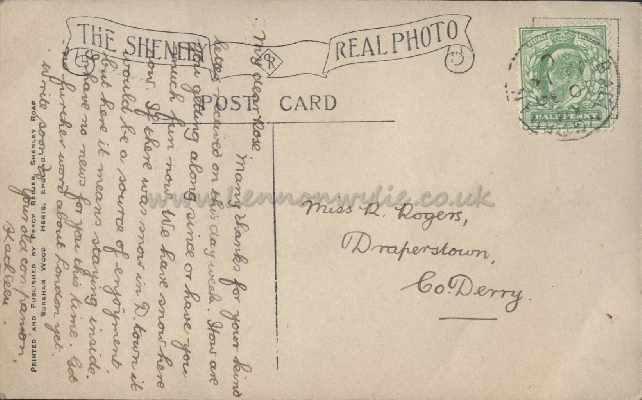 THE SHENLEY
REAL PHOTO
POST CARD
HALFPENNY
My dear Rose
Many thanks for your kind
letter received on this day week. How are
you getting along since or have you
much fun now. We have snow here
now. If there was snow in D. town it
would be a source of enjoyment
but here it means staying inside.
I have no news for you this time. Got
no further word about London yet.
Write soon to
your old companion,
Kathleen.
Miss R. Rogers,
Draperstown,
Co. Derry.
PRINTED AND PUBLISHED BY PERCY SHENLEY ROAD
BOREHAM WOOD HERTS, ENGLAND
www.lennonwylie.co.uk